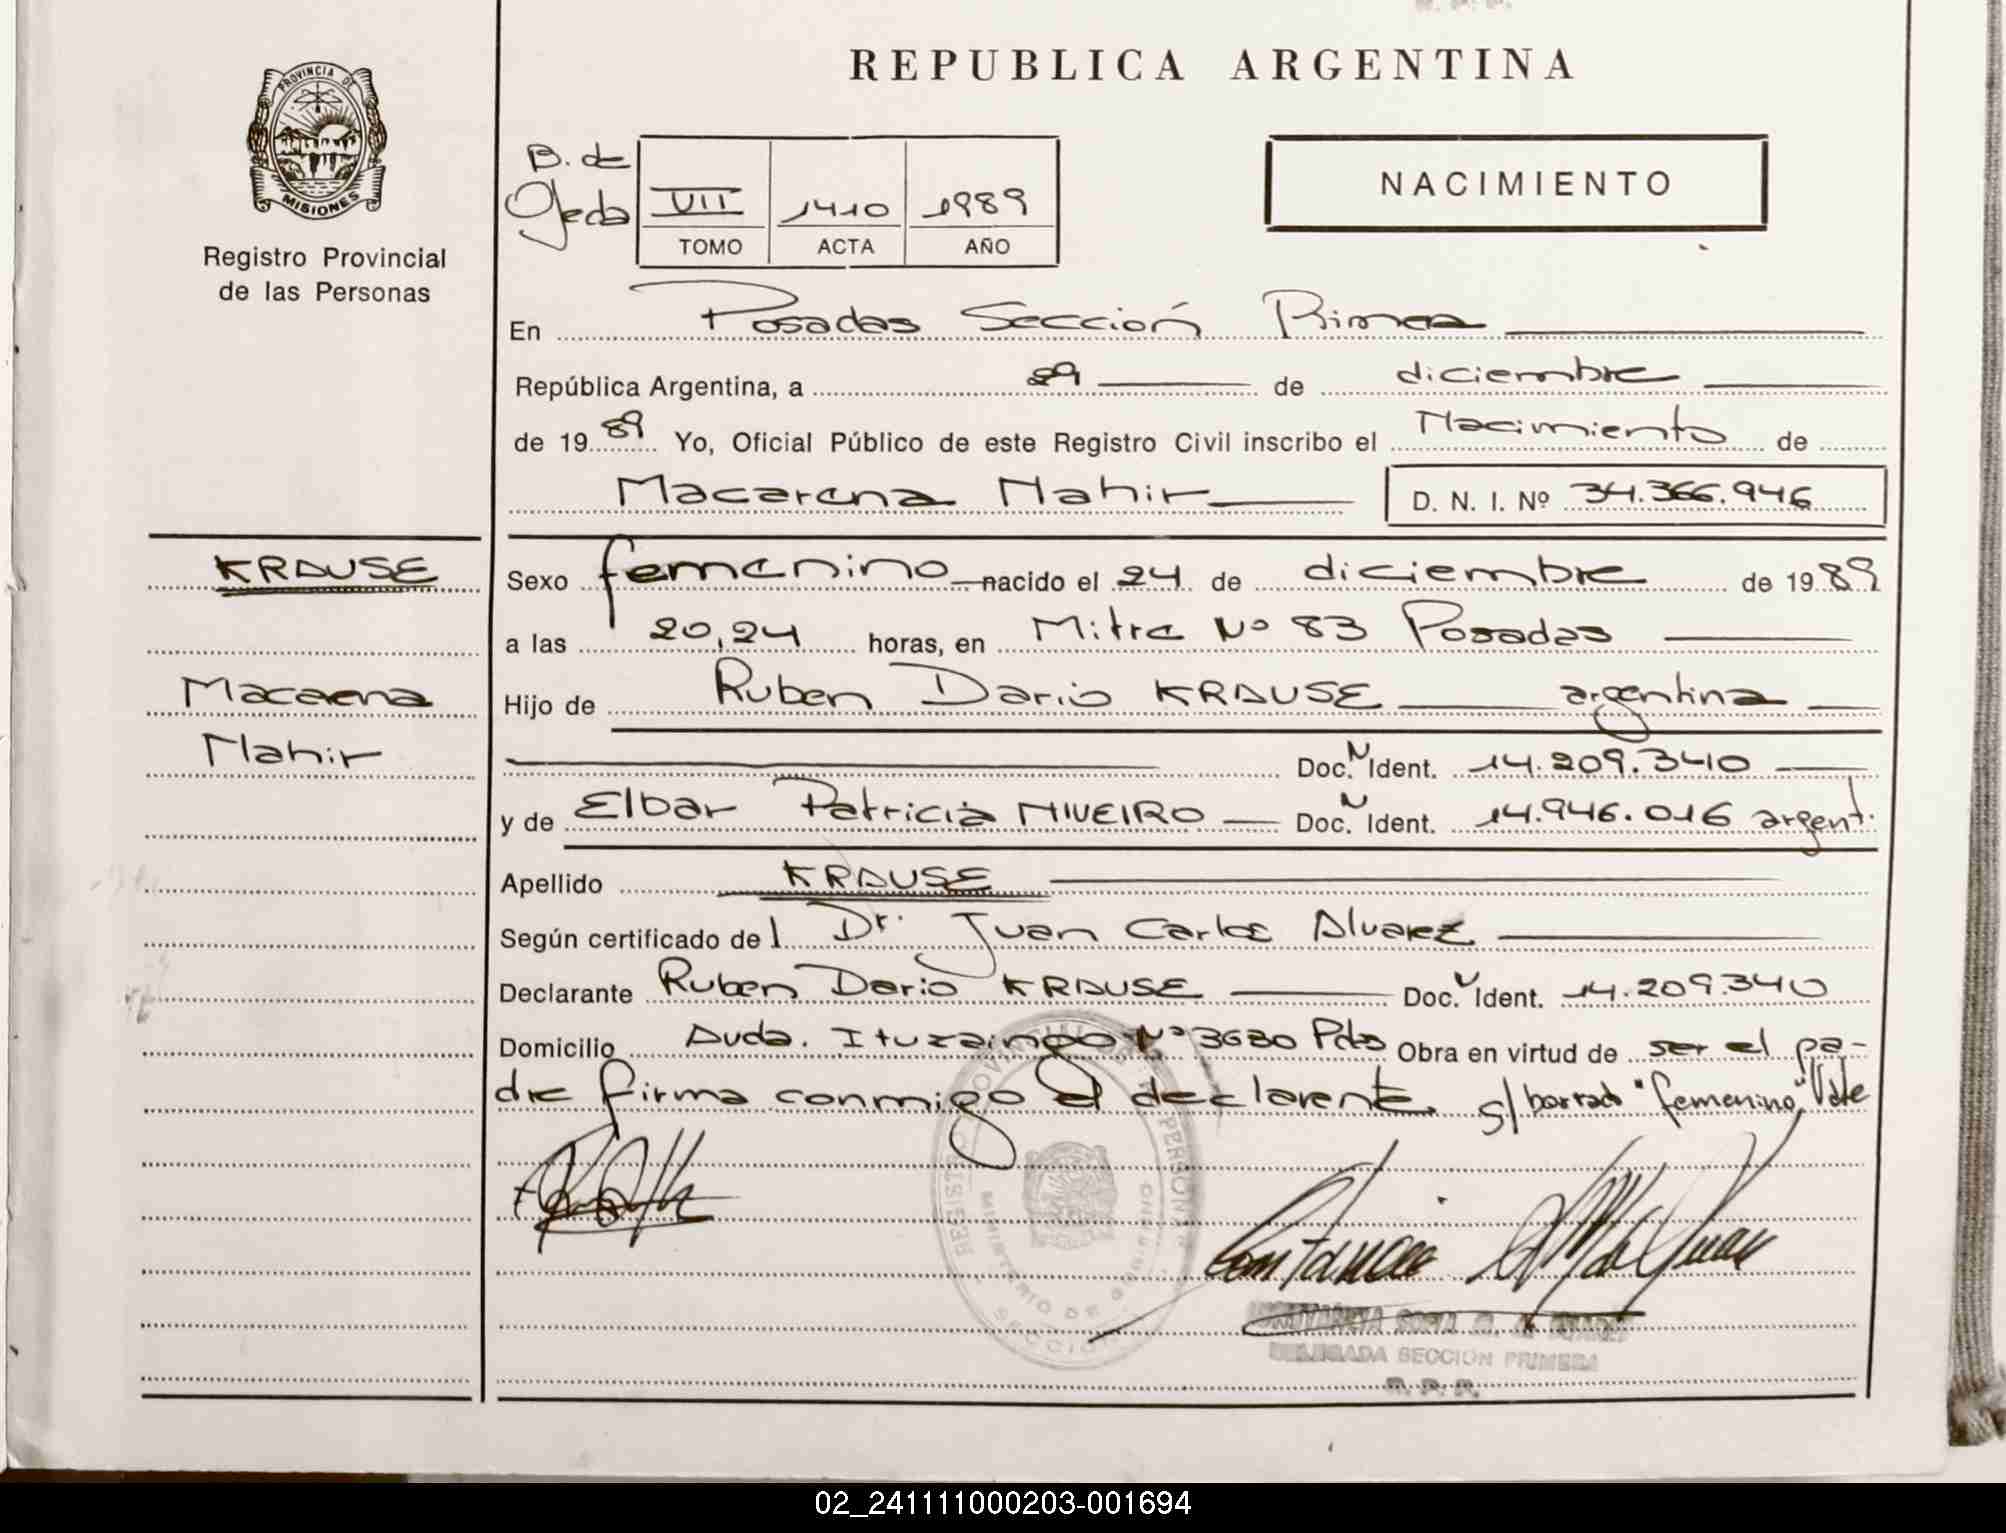 PROVINCIA DE
MISIONES
Registro Provincial
de las Personas
KRAUSE
Macarena
Nahir
REPUBLICA ARGENTINA
B. de
Ojeda
VII 1410 1989
TOMO ACTA AÑO
NACIMIENTO
En Posadas Sección Primera
República Argentina, a 29 de diciembre
de 1989 Yo, Oficial Público de este Registro Civil inscribo el Nacimiento de
Macarena Nahir D. N. I. Nº 34.366.946
Sexo femenino nacido el 24 de diciembre de 1989
a las 20,24 horas, en Mitre Nº 83 Posadas
Hijo de Ruben Dario KRAUSE argentina
Doc. N Ident. 14.209.340
y de Elbar Patricia NIVEIRO Doc. N Ident. 14.946.016 argent.
Apellido KRAUSE
Según certificado del Dr. Juan Carlos Alvarez
Declarante Ruben Dario KRAUSE Doc. N Ident. 14.209.340
Domicilio Avda. Ituzaingo Nº 3680 Pdas Obra en virtud de ser el pa-
dre firma conmigo el declarante. s/borrado "femenino" Vale
REGISTRO PROVINCIAL DE PERSONAS
MINISTERIO DE GOBIERNO
SECCION
DELEGADA SECCION PRIMERA
R. P. P.
02_241111000203-001694